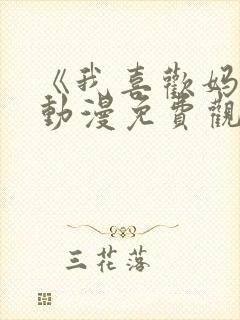 《我喜歡媽
動漫免費觀
三花落